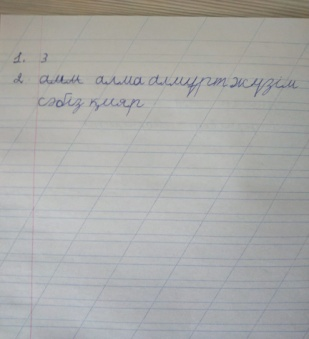 1. 3
2. алма алмұрт жүзім
сәбіз қияр